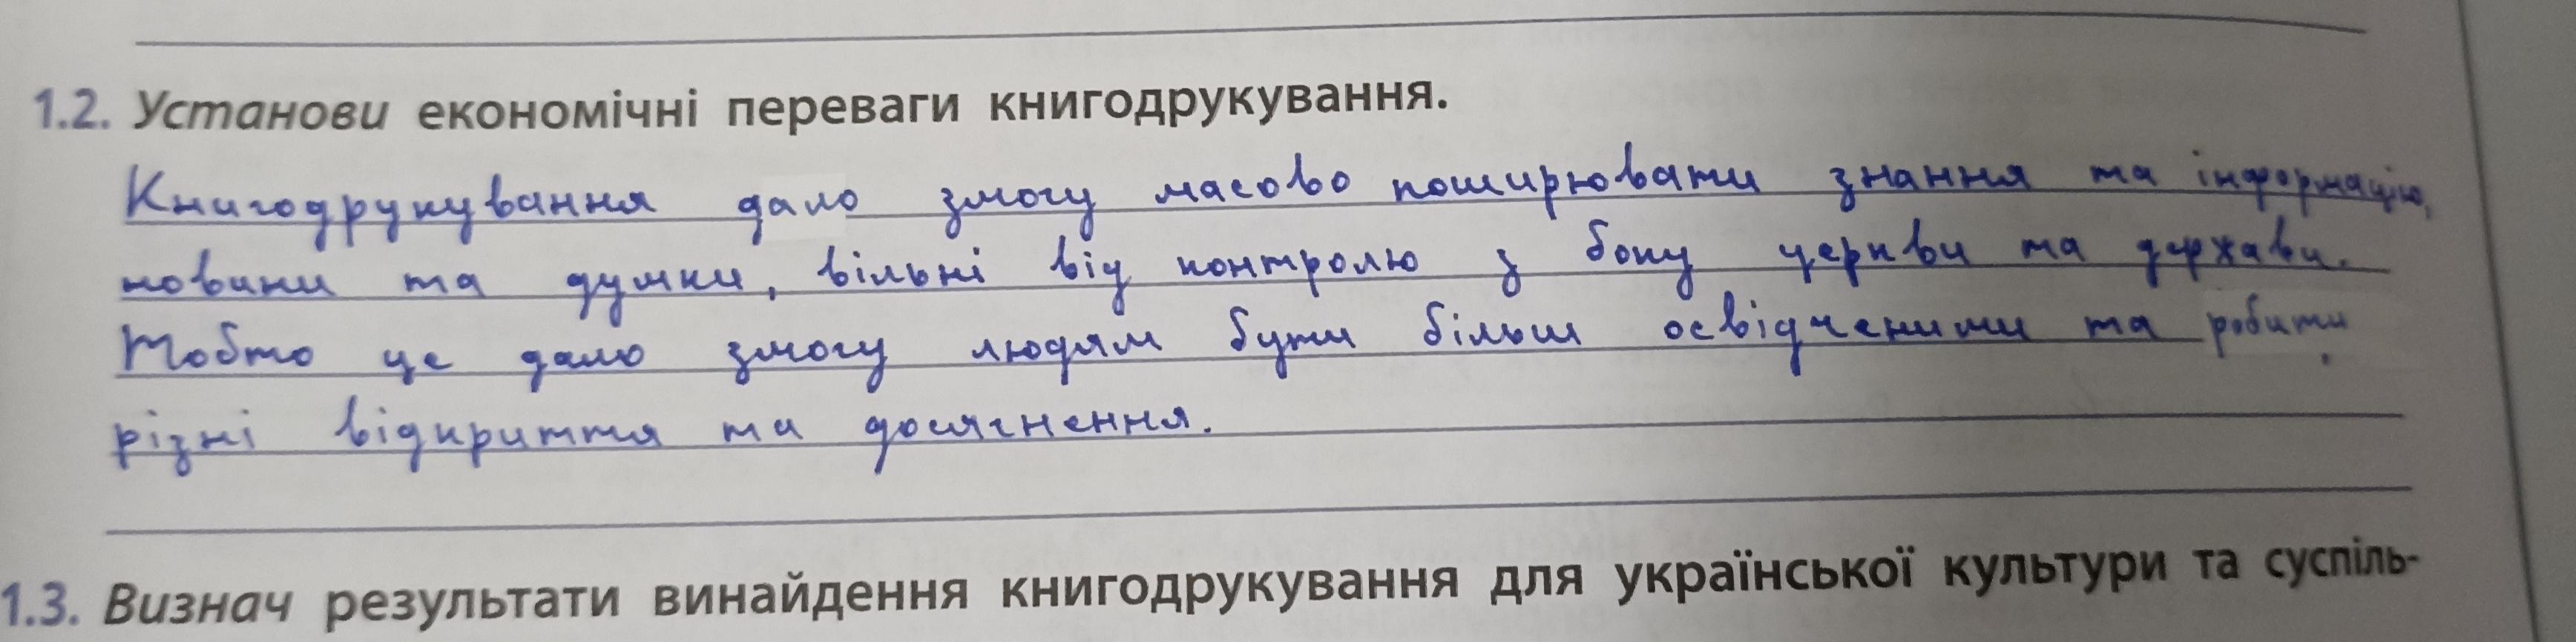 1.2. Установи економічні переваги книгодрукування.
Книгодрукування дало змогу масово поширювати знання та інформацію,
новини та думки, вільні від контролю з боку церкви та держави.
Тобто це дало змогу людям бути більш освідченими та робити
різні відкриття та досягнення.
1.3. Визнач результати винайдення книгодрукування для української культури та суспіль-